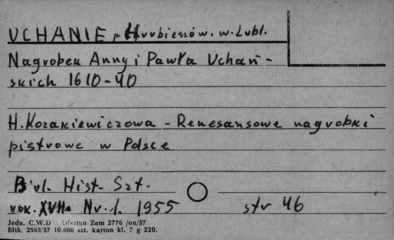 UCHANIE p. Hrubieszów. w. Lubl.
Nagrobek Anny i Pawła Uchań-
skich 1610-40
H. Kozakiewiczowa - Renesansowe nagrobki
piętrowe w Polsce
Biul. Hist. Szt.
rok. XVII. Nr. 1. 1955 str 46
Jedn. C.W.D Olsztyn Zam 2776 /on/57
Bltk. 2563/57 10.000 szt. karton kl. 7 g 220.